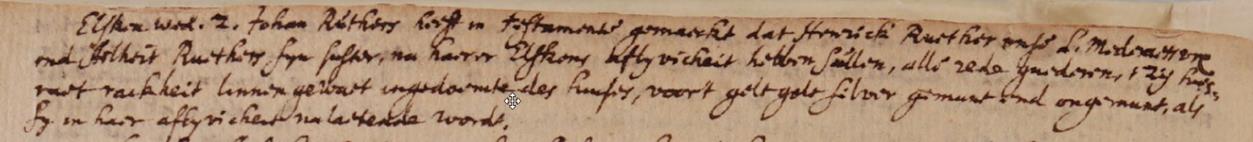 Elsken wed. 2. Johan Rüthers heeft in testamente gemaeckt dat Henrick Ruether onse L. Mederaetsvr
end Aelheit Ruethers syn suster, na harer Elskens aflyvicheit hebben sullen, alle rede guederen, t zy huis
raet rackheit linnen gewaet ingedoemte des huses, voort gelt golt silver gemunt end ongemunt, als
sy in haer aflyvicheit nalaetende wordt.